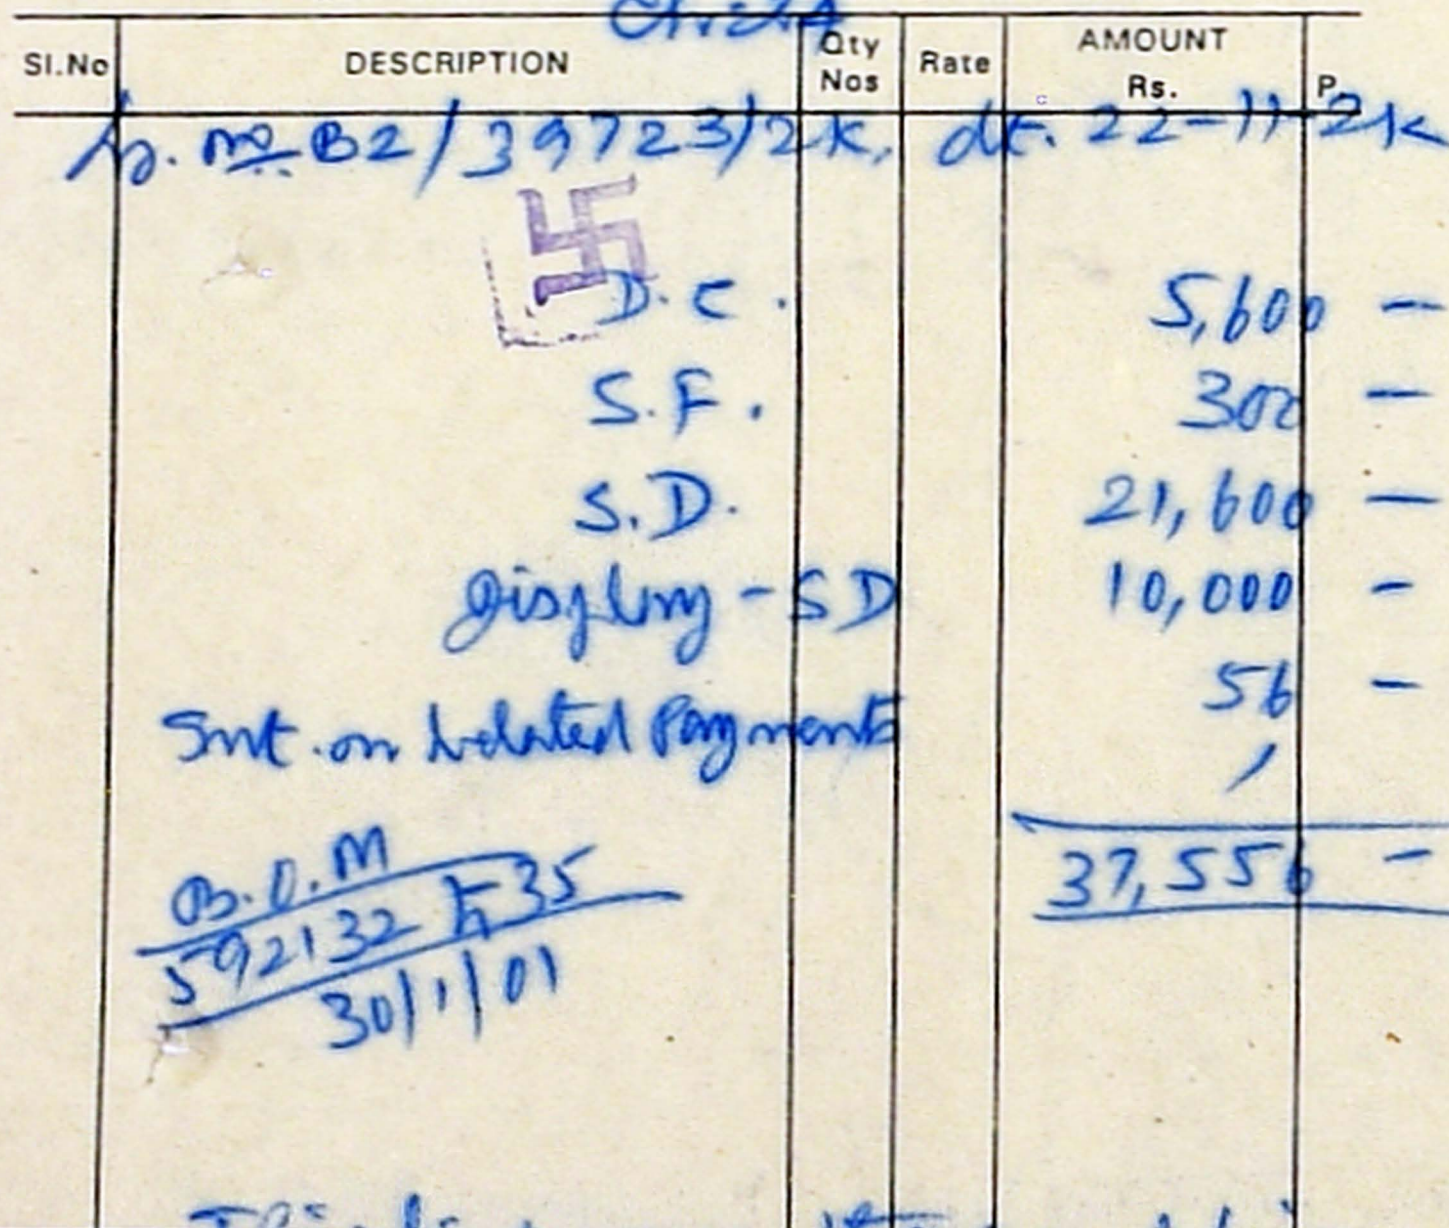 Sl.No DESCRIPTION Qty Nos Rate AMOUNT Rs. P.
No. B2/39723/2K, dt. 22-11-2K
D.C. 5,600 -
S.F. 300 -
S.D. 21,600 -
Display - SD 10,000 -
Int. on belated Payments 56 -
37,556 -
B.O.M
592132 35
30/1/01